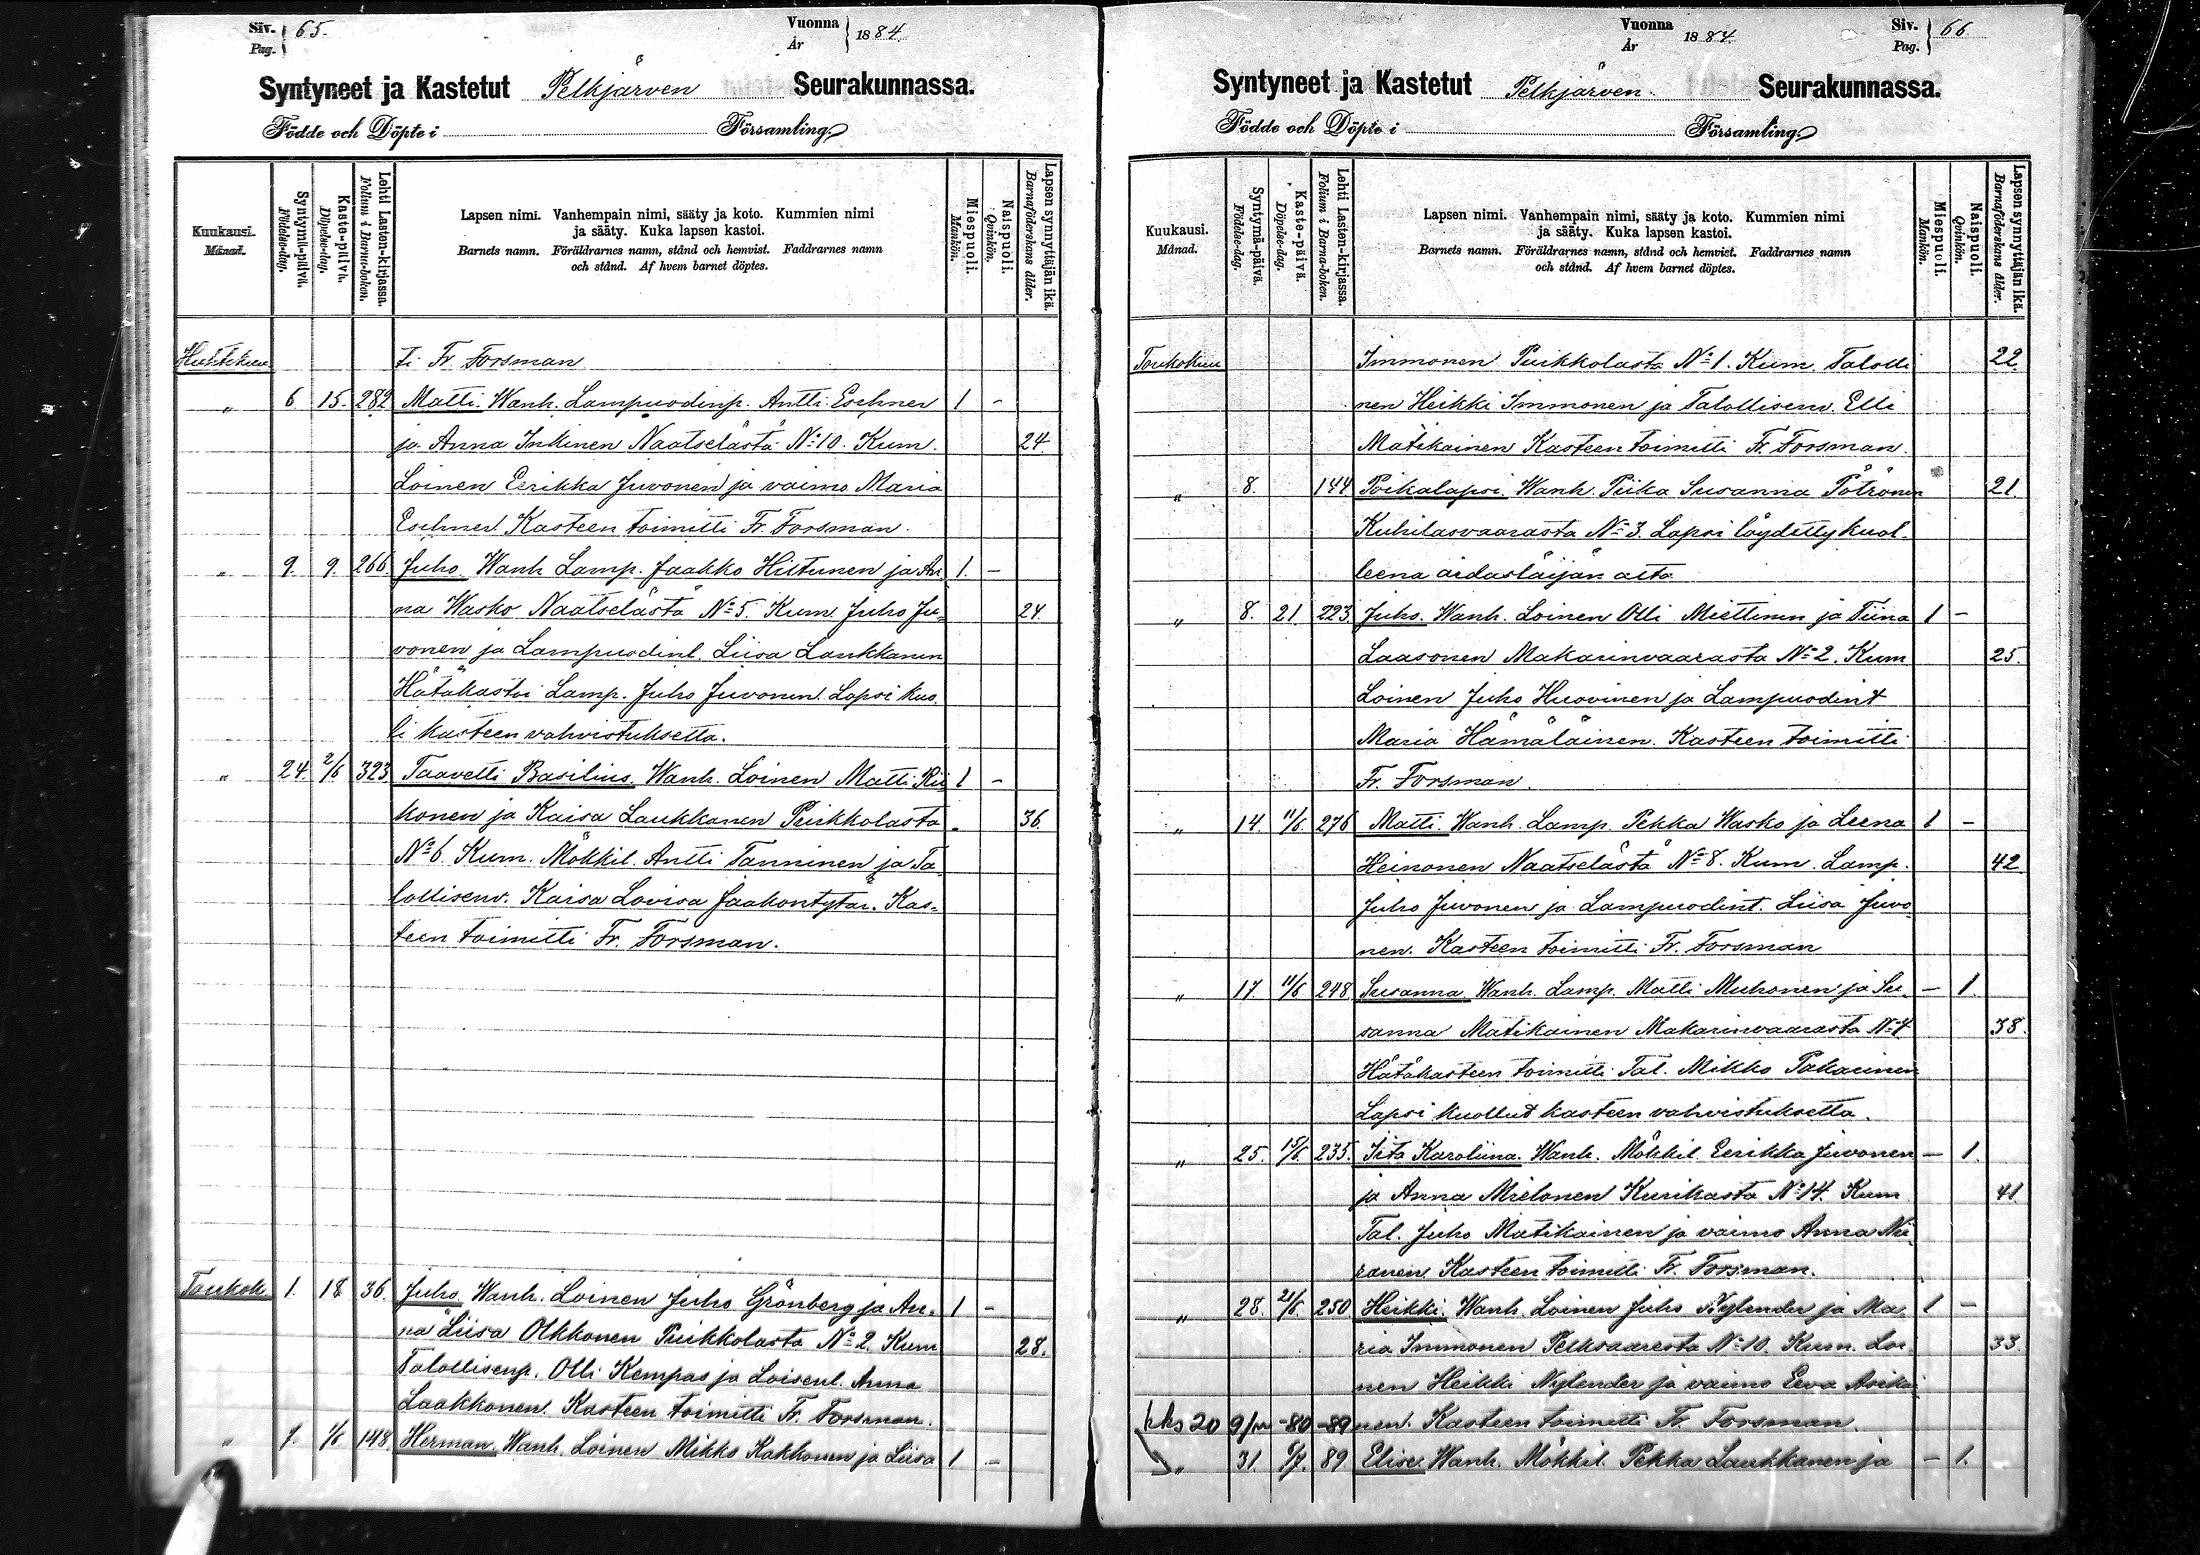 Siv. Pag. 65. Vuonna År 1884.
Syntyneet ja Kastetut Pelkjärven Seurakunnassa.
Födde och Döpte i Församling.
Kuukausi. Månad.
Syntymä-päivä. Födelse-dag.
Kaste-päivä. Döpelse-dag.
Lehti Lasten-kirjassa. Folium i Barna-boken.
Lapsen nimi. Vanhempain nimi, sääty ja koto. Kummien nimi
ja sääty. Kuka lapsen kastoi.
Barnets namn. Föräldrarnes namn, stånd och hemvist. Faddrarnes namn
och stånd. Af hvem barnet döptes.
Miespuoli. Mankön.
Naispuoli. Qvinkön.
Lapsen synnyttäjän ikä. Barnaföderskans ålder.
Huhtikuu ti Fr Forsman
" 6 15. 282 Matti. Wanh. Lampuodinp. Antti Eschner 1 -
ja Anna Inkinen Naatselästä No 10. Kum. 24.
Loinen Eerikka Juvonen ja vaimo Maria
Eschner. Kasteen toimitti Fr. Forsman.
" 9. 9. 266 Juho. Wanh Lamp. Jaakko Hiltunen ja An 1. -
na Wasko Naatselästä No 5. Kum. Juho Ju= 24.
vonen ja Lampuodint. Liisa Laukkanen
Hätäkastoi Lamp. Juho Juvonen. Lapsi kuo
li kasteen vahvistuksetta.
" 24 2/6 323 Taavetti Basilius. Wanh. Loinen Matti Rii 1 -
konen ja Kaisa Laukkanen Puikkolasta 36.
No 6. Kum. Mökkil. Antti Tanninen ja Ta
lollisenv. Kaisa Lovisa Jaakontytär. Kas=
teen toimitti Fr. Forsman.
Toukok 1. 18 36. Juho. Wanh. Loinen Juho Grönberg ja An= 1 -
na Liisa Olkkonen Puikkolasta No 2. Kum 28.
Talollisenp. Olli Kempas ja Loisent. Anna
Laakkonen. Kasteen toimitti Fr. Forsman.
" 7. 1/6 148. Herman. Wanh. Loinen Mikko Kakkonen ja Liisa 1 -
Vuonna År 1884. Siv. Pag. 66
Syntyneet ja Kastetut Pelkjärven. Seurakunnassa.
Födde och Döpte i Församling.
Kuukausi. Månad.
Syntymä-päivä. Födelse-dag.
Kaste-päivä. Döpelse-dag.
Lehti Lasten-kirjassa. Folium i Barna-boken.
Lapsen nimi. Vanhempain nimi, sääty ja koto. Kummien nimi
ja sääty. Kuka lapsen kastoi.
Barnets namn. Föräldrarnes namn, stånd och hemvist. Faddrarnes namn
och stånd. Af hvem barnet döptes.
Miespuoli. Mankön.
Naispuoli. Qvinkön.
Lapsen synnyttäjän ikä. Barnaföderskans ålder.
Toukokuu Immonen Puikkolasta No 1. Kum. Talolli 22.
nen Heikki Immonen ja Talollisenv. Elli
Matikainen Kasteen toimitti Fr. Forsman.
" 8. 144 Poikalapsi. Wanh. Piika Susanna Pötrönen 21.
Kuhilasvaarasta No 3. Lapsi löydetty kuol-
leena
" 8. 21. 223 Juho. Wanh. Loinen Olli Miettinen ja Tiina 1 -
Laasonen Makarinvaarasta No 2. Kum 25.
Loinen Juho Huovinen ja Lampuodint
Maria Hämäläinen. Kasteen toimitti
Fr. Forsman.
" 14. 11/6 276 Matti. Wanh. Lamp. Pekka Wasko ja Leena 1 -
Heinonen Naatselästä No 8. Kum. Lamp. 42
Juho Juvonen ja Lampuodint. Liisa Juvo
nen. Kasteen toimitti Fr. Forsman
" 17. 11/6 248 Susanna. Wanh. Lamp. Matti Muhonen ja Su= - 1.
sanna Matikainen Makarinvaarasta No 4 38.
Hätäkasteen toimitti Tal. Mikko Pakarinen
Lapsi kuollut kasteen vahvistuksetta.
" 25. 15/6. 235. Iita Karoliina. Wanh. Mökkil. Eerikka Juvonen - 1.
ja Anna Mielonen Kurikasta No 14. Kum 41.
Tal. Juho Matikainen ja vaimo Anna Nii
ranen. Kasteen toimitti Fr. Forsman.
" 28. 21/6. 250 Heikki. Wanh. Loinen Juho Nylender ja Ma= 1 -
ria Immonen Pelksaaresta No 10. Kum. Loi 33.
nen Heikki Nylender ja vaimo Eeva Asikai
nen. Kasteen toimitti Fr. Forsman.
" 31. 6/7. 89 Elise. Wanh. Mökkil. Pekka Laukkanen ja - 1.